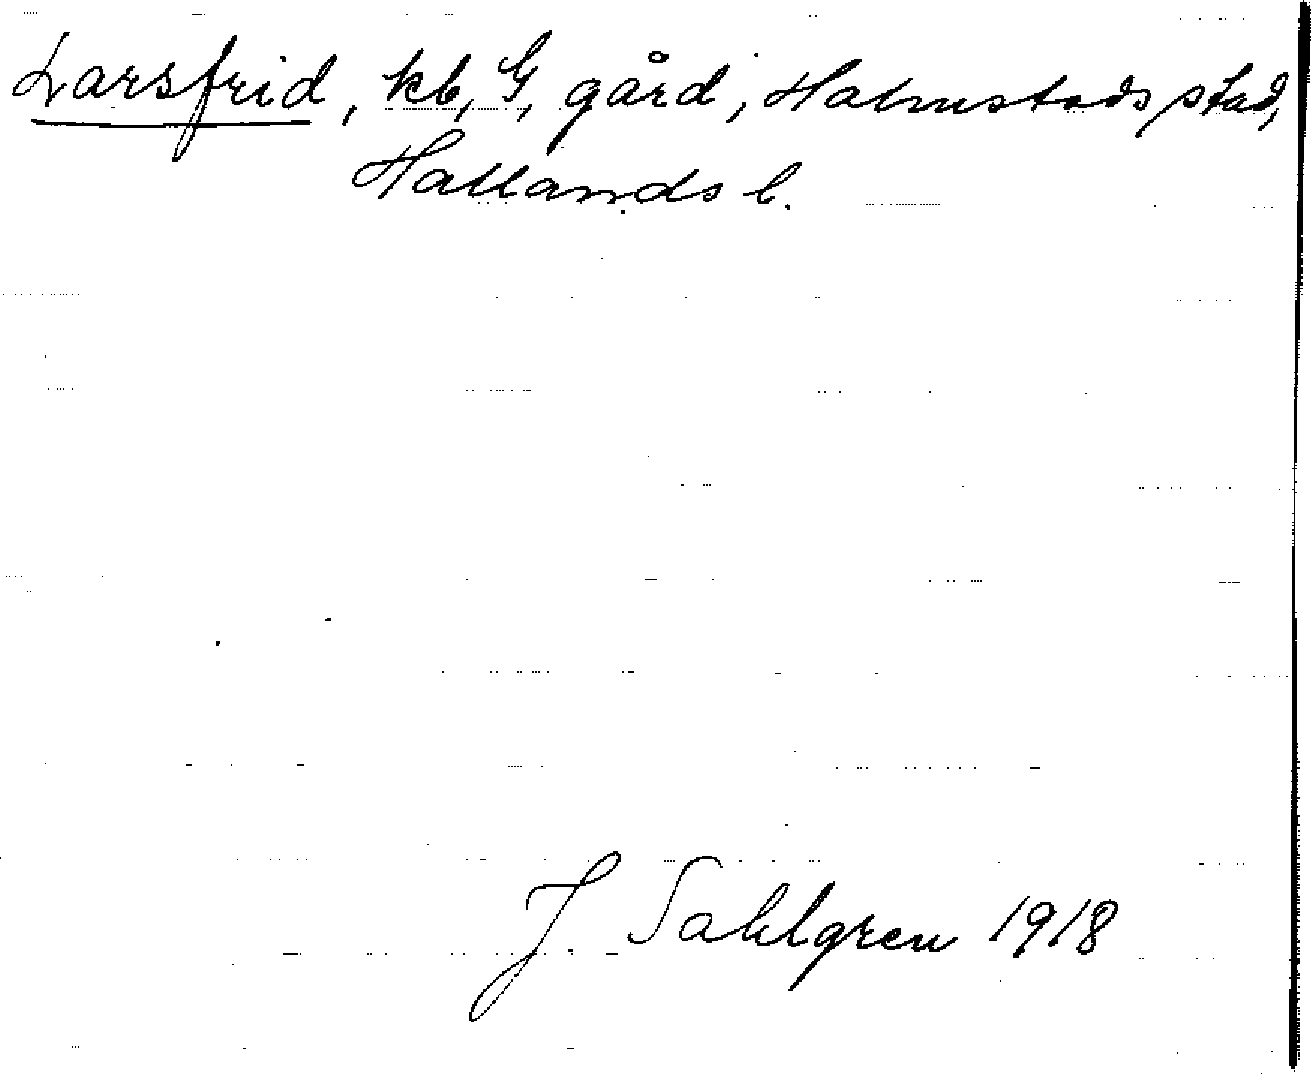 Larsfrid, kb, G, gård, Halmstads stad,
Hallands l.
J Sahlgren 1918